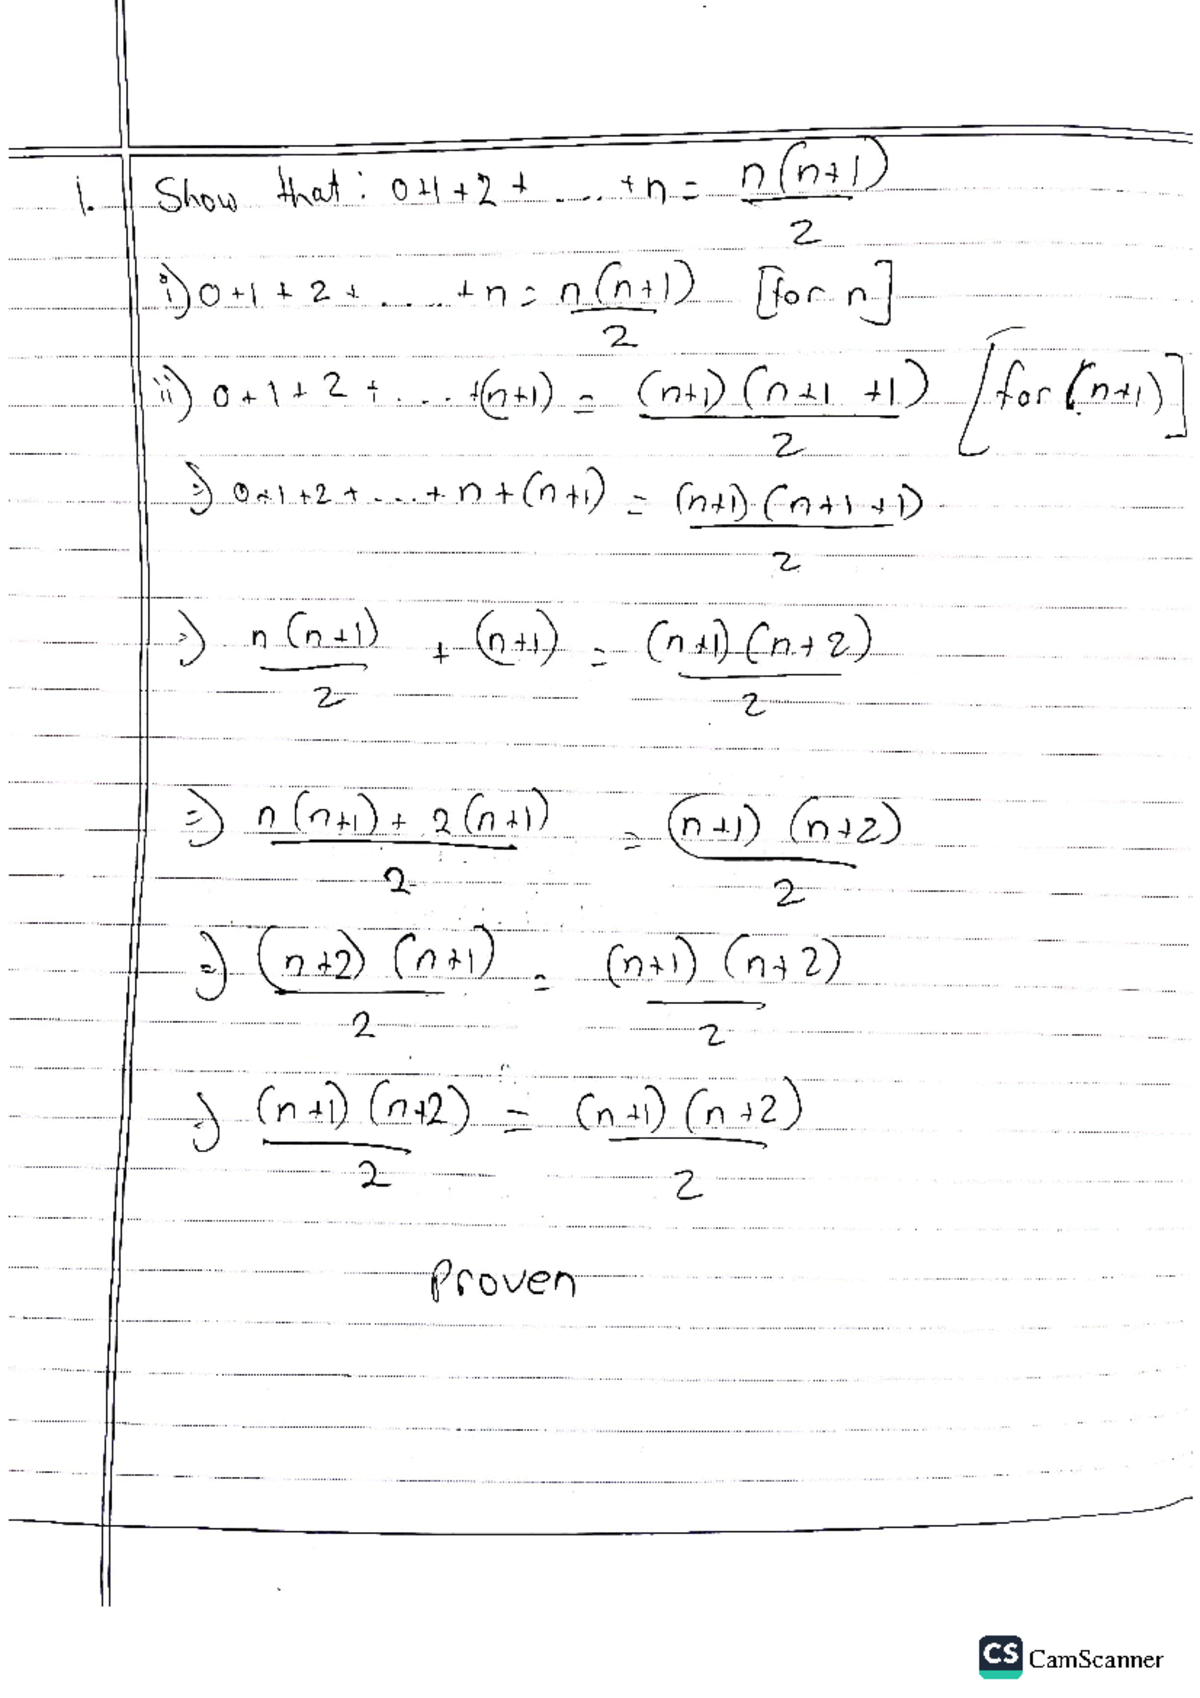 1. Show that: 0+1+2+ .... +n = n(n+1)/2
i) 0+1+2+ ..... +n = n(n+1)/2 [for n]
ii) 0+1+2+ .... +(n+1) = (n+1)(n+1+1)/2 [for (n+1)]
=) 0+1+2+....+n+(n+1) = (n+1)(n+1+1)/2
=) n(n+1)/2 + (n+1) = (n+1)(n+2)/2
=) n(n+1)+2(n+1)/2 = (n+1)(n+2)/2
=) (n+2)(n+1)/2 = (n+1)(n+2)/2
=) (n+1)(n+2)/2 = (n+1)(n+2)/2
Proven
CS CamScanner